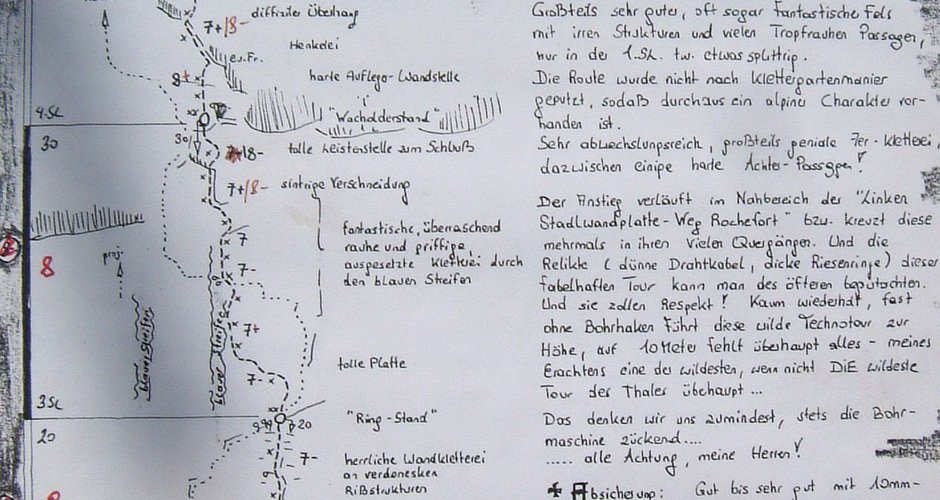 diffiziler Überhang
7+/8-
Henkelei
ev. Fr.
8+
harte Aufleger-Wandstelle
"Wacholderstand"
4.SL
30
30
7+/8-
tolle Leistenstelle zum Schluß
7+/8-
sintrige Verschneidung
fantastische, überraschend
rauhe und griffige,
ausgesetzte Kletterei durch
den blauen Streifen
7
7-
8
proj.
blauer Streifen
blauer Streifen
7+
tolle Platte
7-
3SL
20
"Ring-Stand"
20
7-
herrliche Wandkletterei
an verdonesken
Rißstrukturen
8
Großteils sehr guter, oft sogar fantastischer Fels
mit irren Strukturen und vielen Tropfrauhen Passagen,
nur in der 1.SL. tw. etwas splittrig.
Die Route wurde nicht nach Klettergartenmanier
geputzt, sodaß durchaus ein alpiner Charakter vor-
handen ist.
Sehr abwechslungsreich, großteils geniale 7er-Kletterei,
dazwischen einige harte Achter-Passagen!
Der Anstieg verläuft im Nahbereich des "Linken
Stadlwandplatte-Weg Rochefort" bzw. kreuzt diese
mehrmals in ihren vielen Quergängen. Und die
Relikte (dünne Drahtkabel, dicke Riesenringe) dieser
fabelhaften Tour kann man des öfteren begutachten.
Und sie zollen Respekt! Kaum wiederholt, fast
ohne Bohrhaken führt diese wilde Technotour zur
Höhe, auf 10Meter fehlt überhaupt alles - meines
Erachtens eine der wildesten, wenn nicht DIE wildeste
Tour des Thales überhaupt ...
Das denken wir uns zumindest, stets die Bohr-
maschine zückend....
..... alle Achtung, meine Herren!
Absicherung: Gut bis sehr gut mit 10mm-